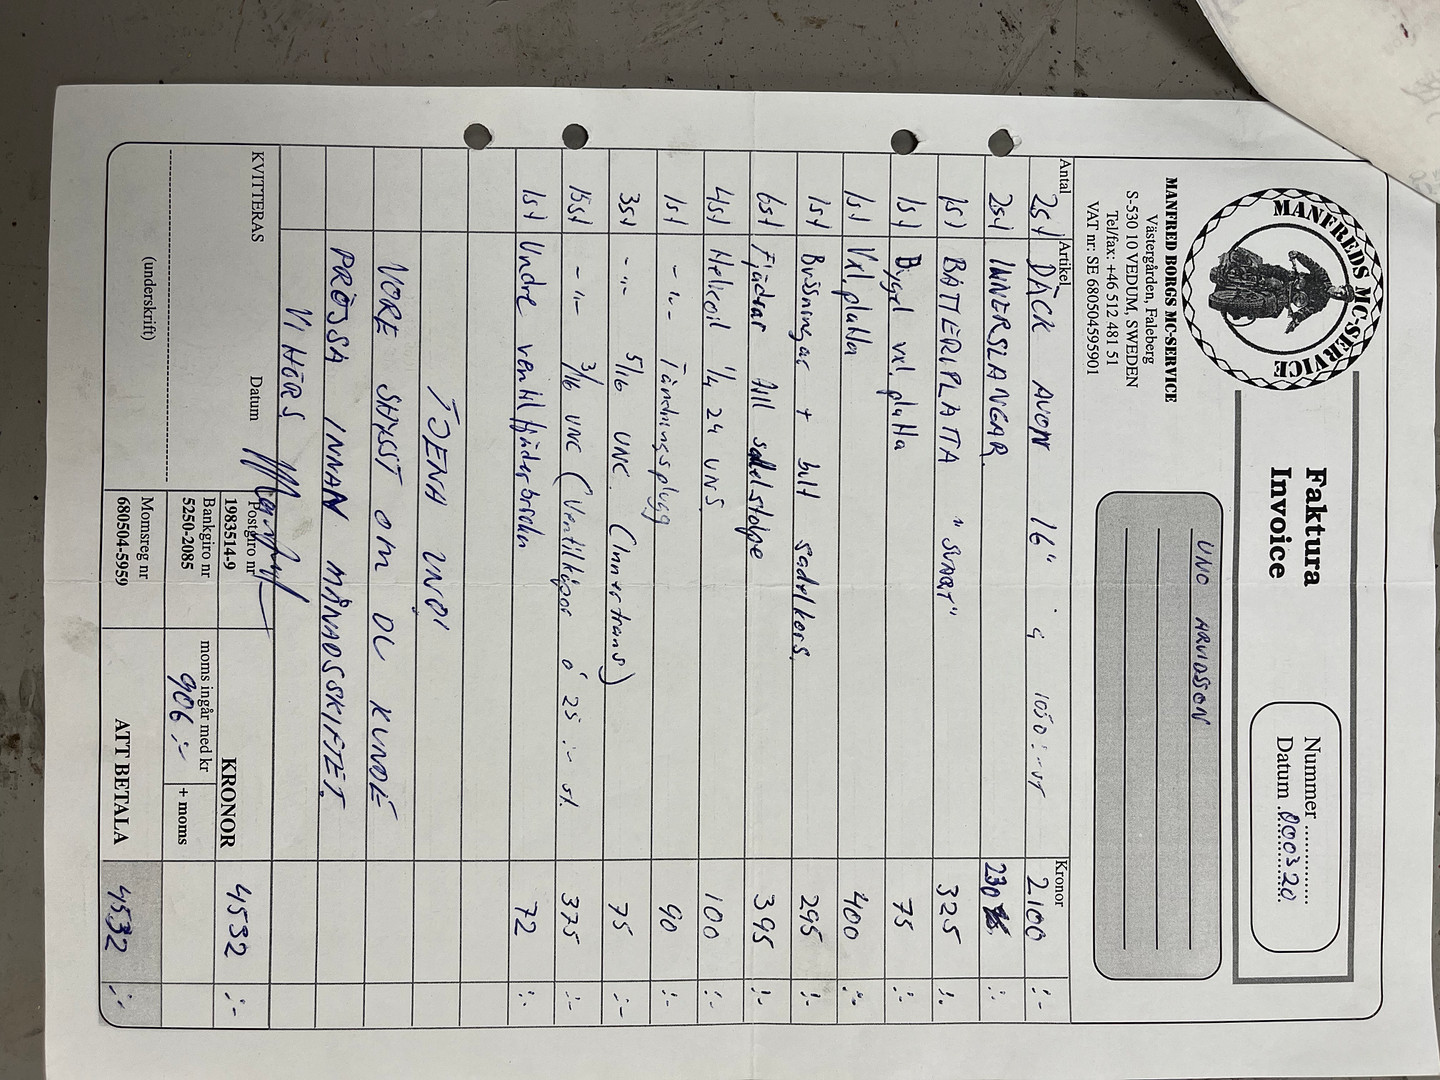 MANFREDS MC-SERVICE
Faktura
Invoice
Nummer ..............
Datum 000320
MANFRED BORGS MC-SERVICE
Västergården, Faleberg
S-530 10 VEDUM, SWEDEN
Tel/fax: +46 512 481 51
VAT nr: SE 680504595901
UNO ARVIDSSON
Antal Artikel Kronor
2st DÄCK AVON 16" á 1050:-st 2100 :-
2st INNERSLANGAR. 230 :-
1st BATTERIPLATTA "SVART" 325 :-
1st Bygel vxl. platta 75 :-
1st Vxl. platta 400 :-
1st Bussningar + bult sadelkors. 295 :-
6st Fjädrar till sadelstolpe 395 :-
4st Helicoil 1/4 24 UNS 100 :-
1st -"- Tändningsplugg 90 :-
3st -"- 5/16 UNC. (Innertrans) 75 :-
15st -"- 3/16 UNC (Ventilkåpor á 25:- st. 375 :-
1st Undre ventilfjäderbrickor 72 :-
TJENA UNO!
VORE SHYSST OM DU KUNDE
PRÖJSA INNAN MÅNADSSKIFTET.
VI HÖRS
KVITTERAS Datum
(underskrift)
Postgiro nr
1983514-9
Bankgiro nr
5250-2085
Momsreg nr
680504-5959
KRONOR 4532 :-
moms ingår med kr
906 :-
+ moms
ATT BETALA 4532 :-